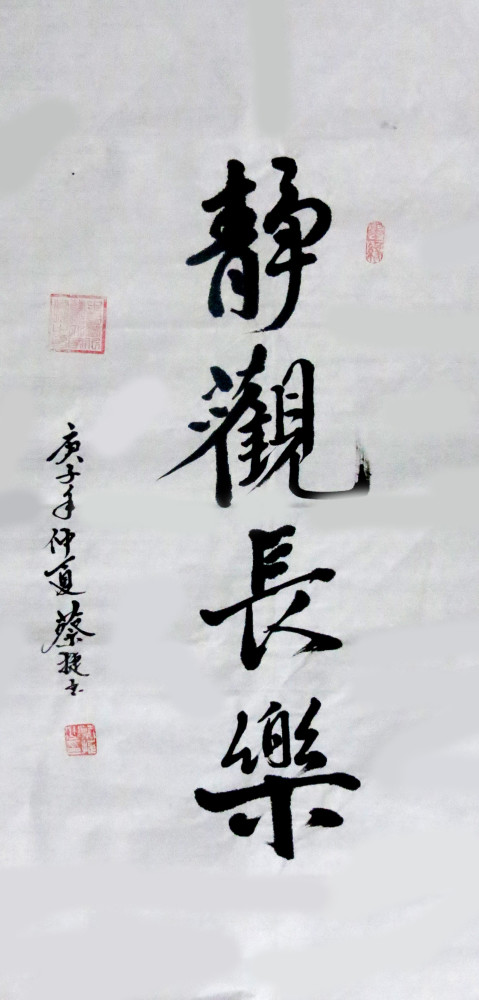 靜觀長樂
庚子年仲夏蔡捷书